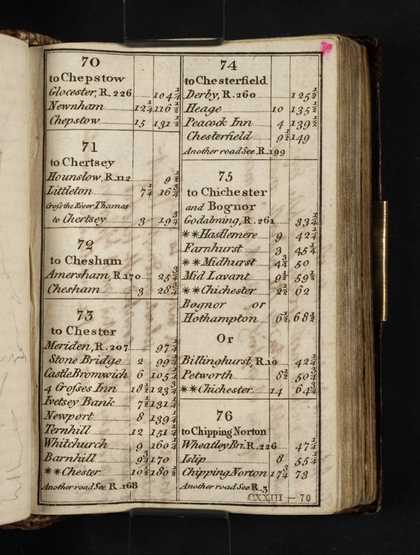 70
to Chepstow
Glocester, R.226 104¼
Newnham 12¼ 116½
Chepstow 15 131½
71
to Chertsey
Hounslow, R.112 9½
Littleton 7¼ 16¾
Cross the River Thames
to Chertsey 3 19¾
72
to Chesham
Amersham, R.170 25¾
Chesham 3 28¾
73
to Chester
Meriden, R.207 97
Stone Bridge 2 99
Castle Bromwich 6 105
4 Crosses Inn 18 123
Ivetsey Bank 7½ 131
Newport 8 139
Ternhill 12 151
Whitchurch 9 160
Barnhill 9 170
**Chester 10 180
Another road See R.168
74
to Chesterfield
Derby, R.260 125½
Heage 10 135½
Peacock Inn 4 139½
Chesterfield 9½ 149
Another road See R.199
75
to Chichester
and Bognor
Godalming, R.261 33¼
**Haslemere 9 42¼
Farnhurst 3 45¼
**Midhurst 4¾ 50
Mid Lavant 9½ 59½
**Chichester 2½ 62
Bognor or
Hothampton 6½ 68½
Or
Billinghurst, R.10 42¼
Petworth 8½ 50¾
**Chichester 14 64¾
76
to Chipping Norton
Wheatley Br. R.226 47¼
Islip 8 55¼
Chipping Norton 17¾ 73
Another road See R.3
CXXIII — 70